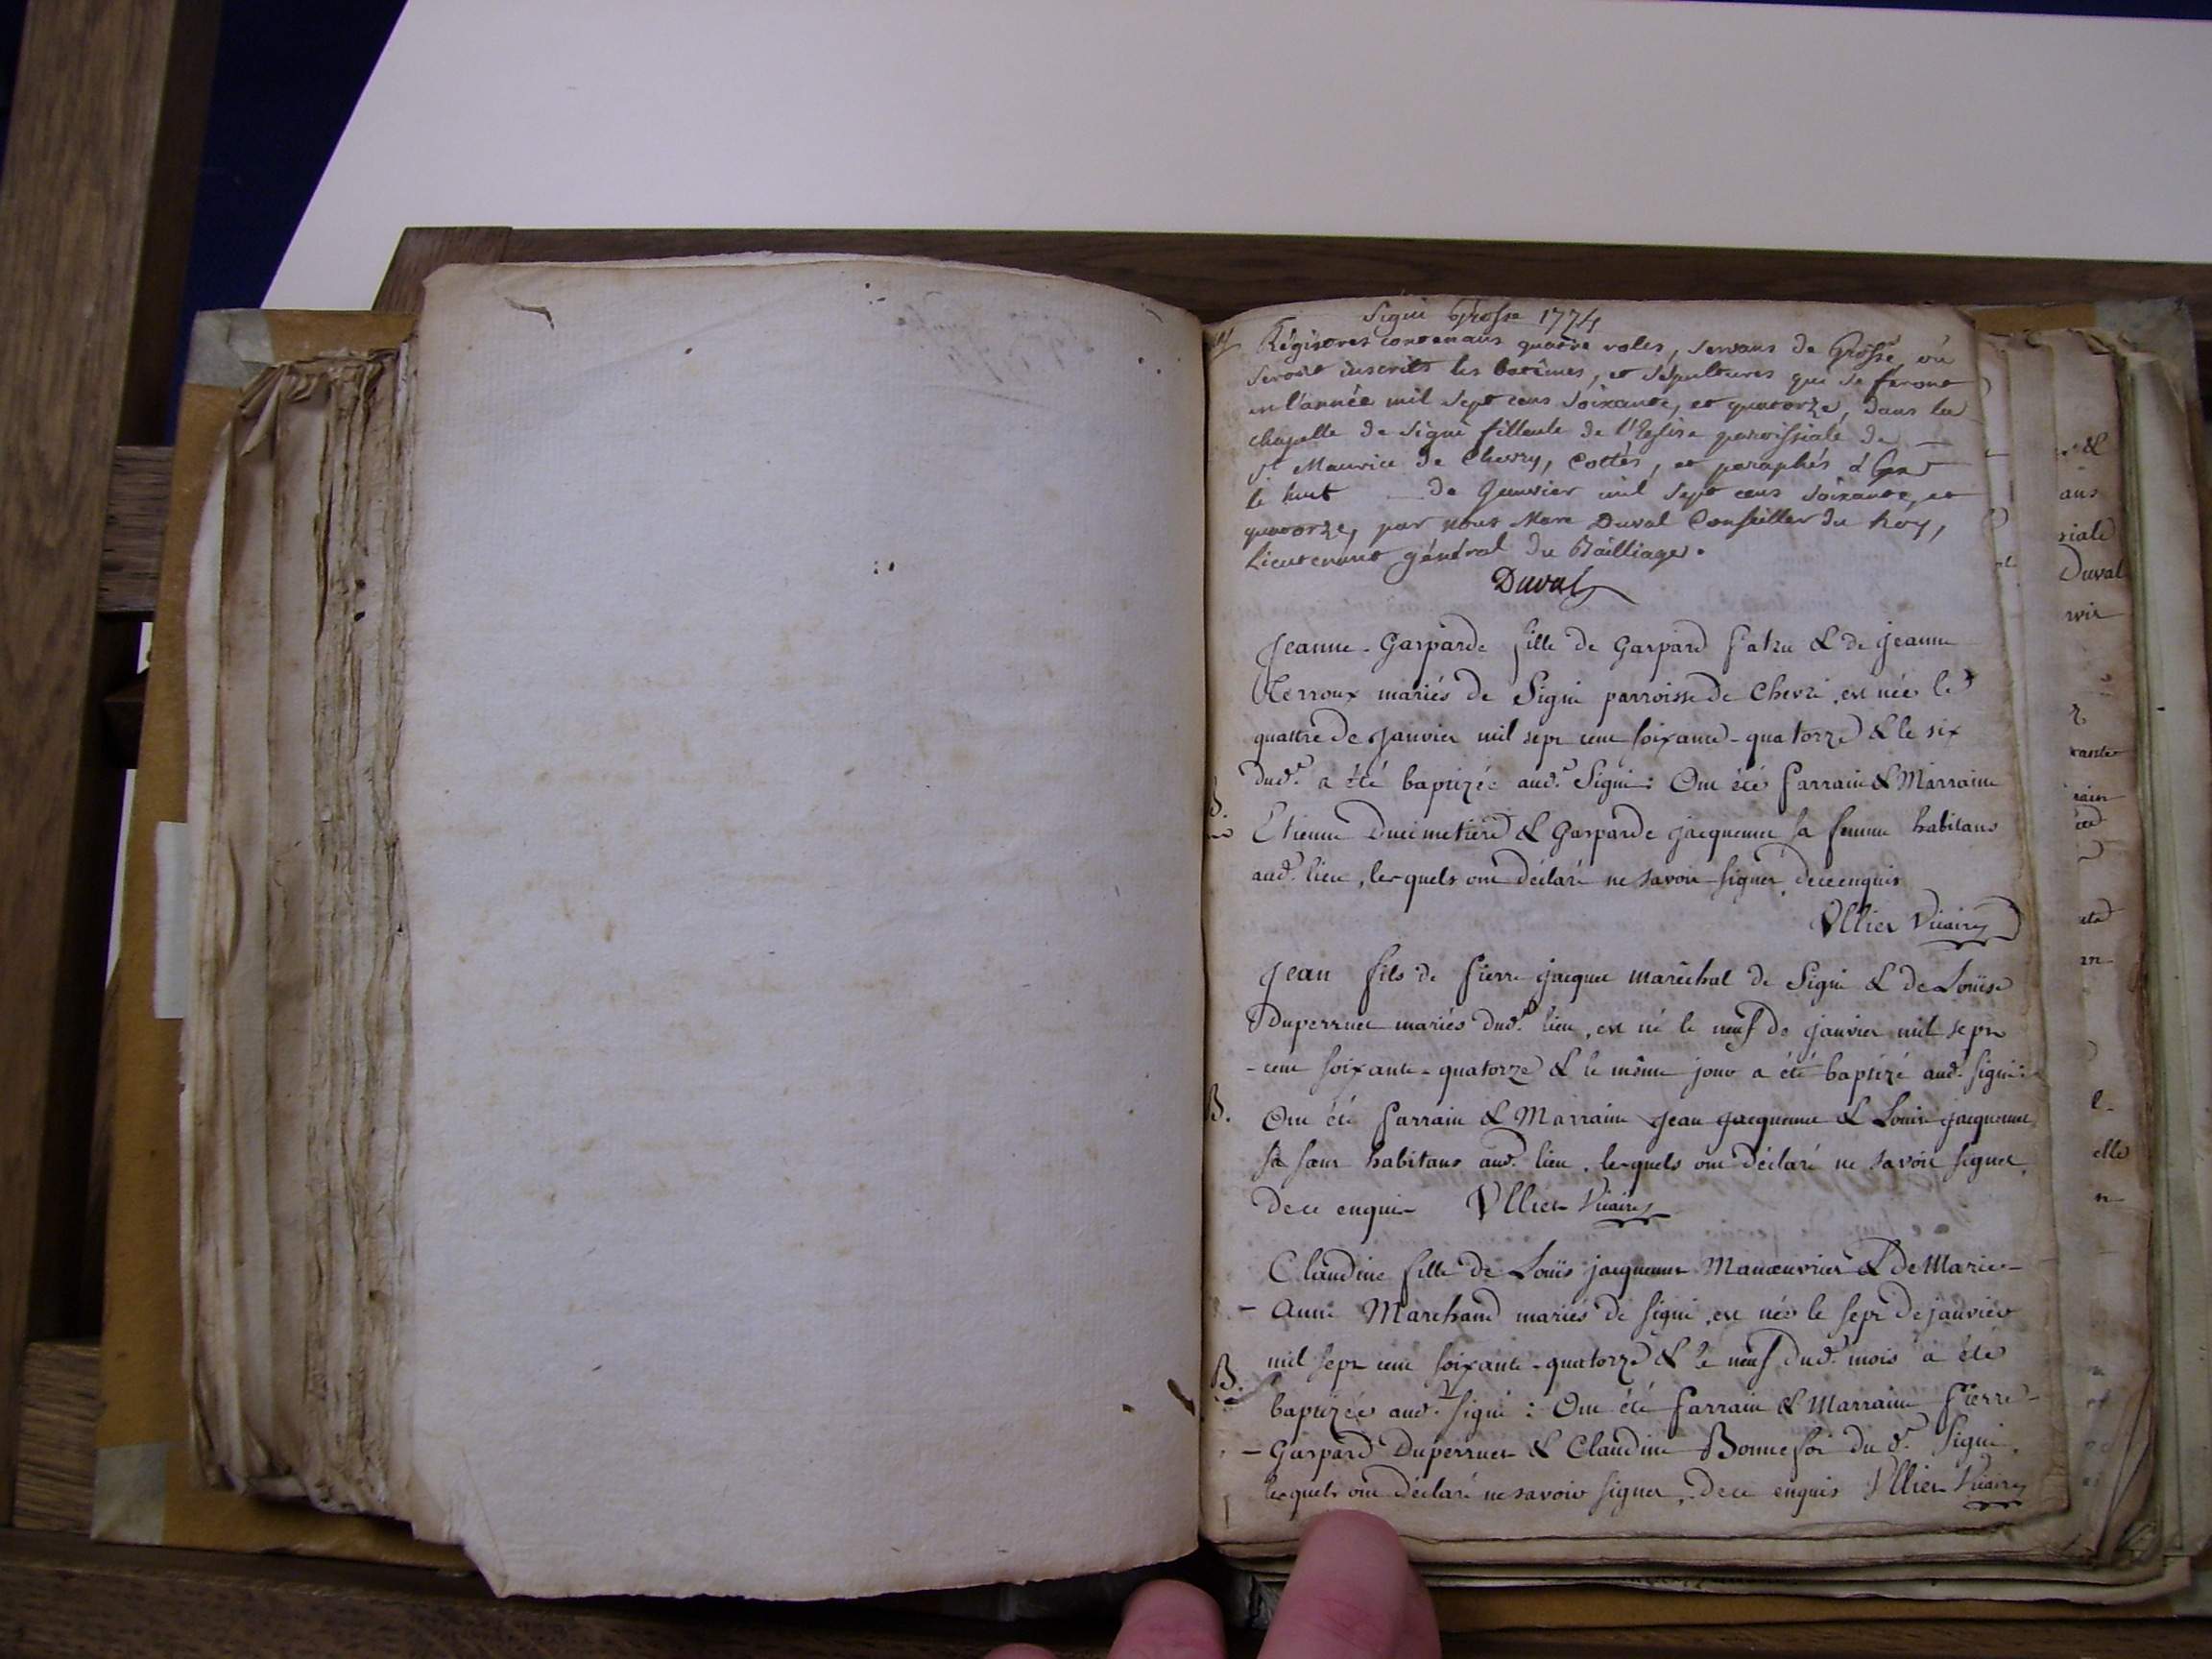 Signi Grosse 1774
Régistres contenans quatre roles, servans de Grosse, où
seront inscrits les batêmes, et sépultures qui se feront
en l'année mil sept cens soixante, et quatorze, dans la
chapelle de Signi filleule de l'Eglise paroissiale de
St Maurice de Chevry, cottés, et paraphés à Gex
le huit de Janvier mil sept cens soixante, et
quatorze, par nous Marc Duval Conseiller du Roy,
Lieutenant général du Bailliage.
Duval
Jeanne-Gasparde fille de Gaspard & de jeanne
mariés de Signi parroisse de Chevri, est née le
quattre de Janvier mil sept cent soixante-quatorze & le six
dud.t a été baptizée aud.t Signi: Ont été Parrain & Marraine
Etienne Ducimetière & Gasparde jacquemet sa femme habitans
aud.t lieu, lesquels ont déclaré ne savoir signer, de ce enquis
Ullier Vicaire
Jean fils de Pierre jacquet maréchal de Signi & de Louïse
Duperruet mariés dud.t lieu, est né le neuf de janvier mil sept
-cent soixante-quatorze & le même jour a été baptizé aud.t Signi:
B.
Ont été Parrain & Marraine Jean jacquemet & Louise jacquemet
sa sœur habitans aud.t lieu, lesquels ont déclaré ne savoir signer,
de ce enquis Ullier Vicaire
Claudine fille de Louïs jacquemet Manœuvrier & de Marie-
-Anne Marchand mariés de Signi, est née le sept de janvier
mil sept cent soixante-quatorze & le neuf dud.t mois a été
B.
baptizée aud.t Signi: Ont été Parrain & Marraine Pierre-
-Gaspard Duperruet & Claudine Bonnefoi du d.t Signi,
lesquels ont déclaré ne savoir signer, de ce enquis Ullier Vicaire
ans
siale
Duval
elle